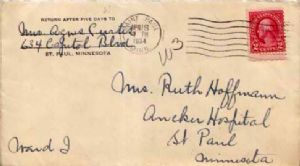 RETURN AFTER FIVE DAYS TO
Mrs. Agnes Curtis
634 Capitol Blvd
ST. PAUL, MINNESOTA
SAINT PAUL
1934
MINN.
W3
Mrs. Ruth Hoffmann
Ancker Hospital
St Paul
Minnesota
Ward I